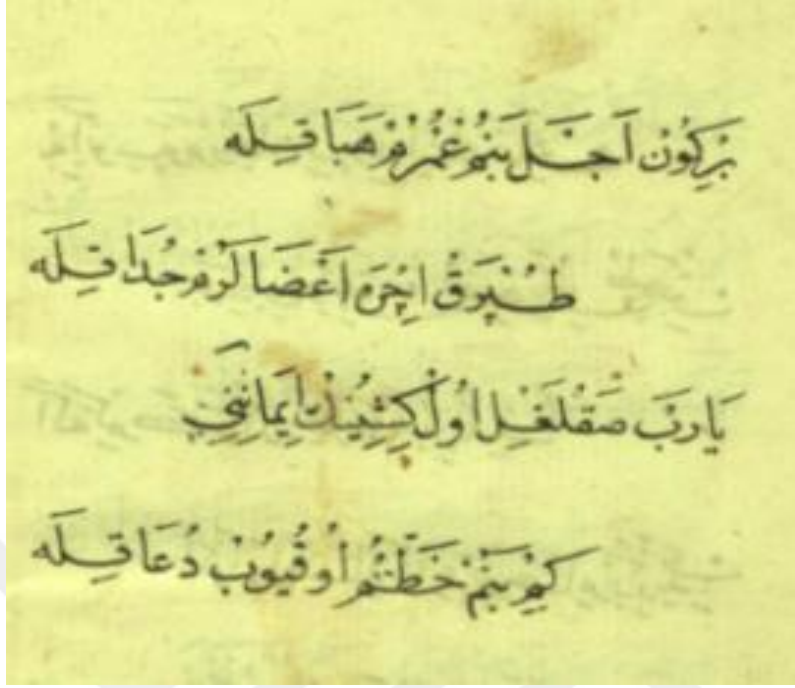 بَرْكُونْ اَجَلْ بَنُمْ عُمْرُمْ هَبَا قِلَه
طُپْرَقْ اِچْرَه اَعْضَالَرُمْ جُدَا قِلَه
يَارَبْ صَقْلَغِلْ اُولْ كِشِينُكْ اِيمَانِنِي
كِمْ بَنُمْ خَطُّمْ اُوقُيُوبْ دُعَا قِلَه